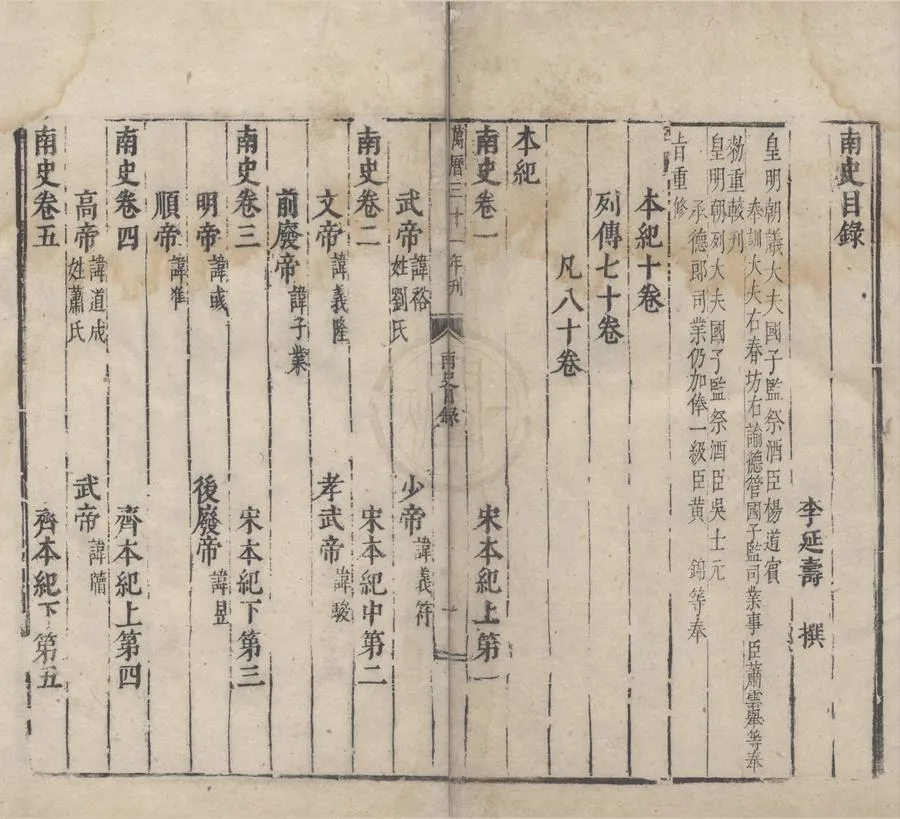 南史目錄
李延壽 撰
皇明朝議大夫國子監祭酒臣楊道賓
奉訓大夫右春坊右諭德管國子監司業事臣蕭雲舉等奉
勑重較刊
皇明朝列大夫國子監祭酒臣吳士元
承德郎司業仍加俸一級臣黃 錦等奉
旨重修
本紀十卷
列傳七十卷
凡八十卷
本紀
南史卷一 宋本紀上第一
萬曆三十一年刊 南史目錄 一
武帝 諱裕 姓劉氏 少帝 諱義符
南史卷二 宋本紀中第二
文帝 諱義隆 孝武帝 諱駿
前廢帝 諱子業
南史卷三 宋本紀下第三
明帝 諱彧 後廢帝 諱昱
順帝 諱准
南史卷四 齊本紀上第四
高帝 諱道成 姓蕭氏 武帝 諱賾
南史卷五 齊本紀下第五